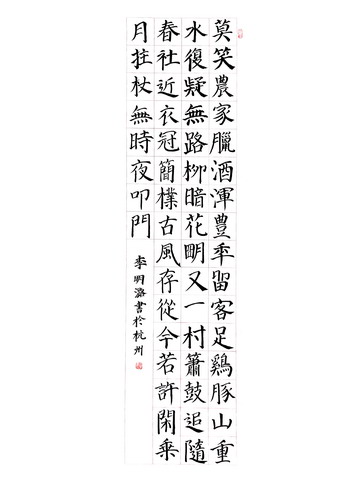 莫笑農家臘酒渾豊年留客足鷄豚山重
水復疑無路柳暗花明又一村簫鼓追隨
春社近衣冠簡樸古風存從今若許閑乘
月拄杖無時夜叩門
李明潞書於杭州